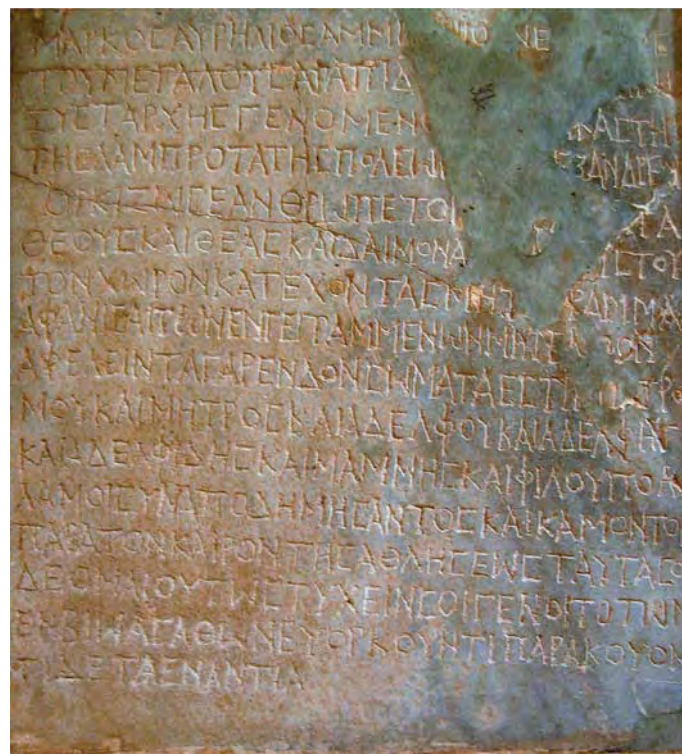 ΜΑΡΚΟΣ ΑΥΡΗΛΙΟΣ ΑΜΜΙ
ΤΟΥ ΜΕΓΑΛΟΥ ΣΑΡΑΠΙΔ
ΞΥΣΤΑΡΧΗΣ ΓΕΝΟΜΕΝΟ
ΤΗΣ ΛΑΜΠΡΟΤΑΤΗΣ ΠΟΛΕΩΣ ΞΑΝΔΡΕΩ
ΟΡΚΙΖΩ ΣΕ ΑΝΘΡΩΠΕ ΤΟΥ
ΘΕΟΥΣ ΚΑΙ ΘΕΑΣ ΚΑΙ ΔΑΙΜΟΝΑ ΙΣ ΤΟΥ
ΤΟΝ ΧΩΡΟΝ ΚΑΤΕΧΟΝΤΑΣ ΜΗΣ
ΑΦΑΝΙΣΑΙ ΤΩΝ ΕΝΓΕΓΡΑΜΜΕΝΩΝ ΜΗΤΕ
ΑΦΕΛΕΙΝ ΤΑ ΓΑΡ ΕΝΔΟΝ ΣΩΜΑΤΑ ΕΣΤΙΝ ΠΑΤΡΟ
ΜΟΥ ΚΑΙ ΜΗΤΡΟΣ ΚΑΙ ΑΔΕΛΦΟΥ ΚΑΙ ΑΔΕΛΦΗΣ
ΚΑΙ ΑΔΕΛΦΙΔΗΣ ΚΑΙ ΜΑΜΜΗΣ ΚΑΙ ΦΙΛΟΥ ΠΟΛ
ΛΑ ΜΟΙ ΣΥΝΑΠΟΔΗΜΗΣΑΝΤΟΣ ΚΑΙ ΚΑΜΟΝΤΟ
ΠΑΡΑ ΤΟΝ ΚΑΙΡΟΝ ΤΗΣ ΑΘΛΗΣΕΩΣ ΤΑΥΤΑ ΣΟΥ
ΔΕΟΜΑΙ ΟΥΤΩΣ ΤΥΧΕΙΝ ΣΟΙ ΓΕΝΟΙΤΟ ΤΩΝ
ΕΝ ΒΙΩ ΑΓΑΘΩΝ ΕΥΟΡΚΟΥΝΤΙ ΠΑΡΑΚΟΥΟΝ
ΤΙ ΔΕ ΤΑ ΕΝΑΝΤΙΑ